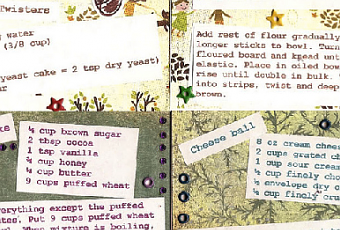 Twisters
y water
(3/8 cup)
yeast cake = 2 tsp dry yeast)
Add rest of flour gradually
longer sticks to bowl. Turn
floured board and knead unt
elastic. Place in oiled bow
rise until double in bulk.
into strips, twist and deep
brown.
¼ cup brown sugar
2 tbsp cocoa
1 tsp vanilla
¼ cup honey
¼ cup butter
9 cups puffed wheat
verything except the puffed
Put 9 cups puffed wheat
When mixture is boiling,
Cheese ball
8 oz cream chees
2 cups grated ch
1 cup sour cream
¼ cup finely cho
½ envelope dry o
¼ cup finely cru